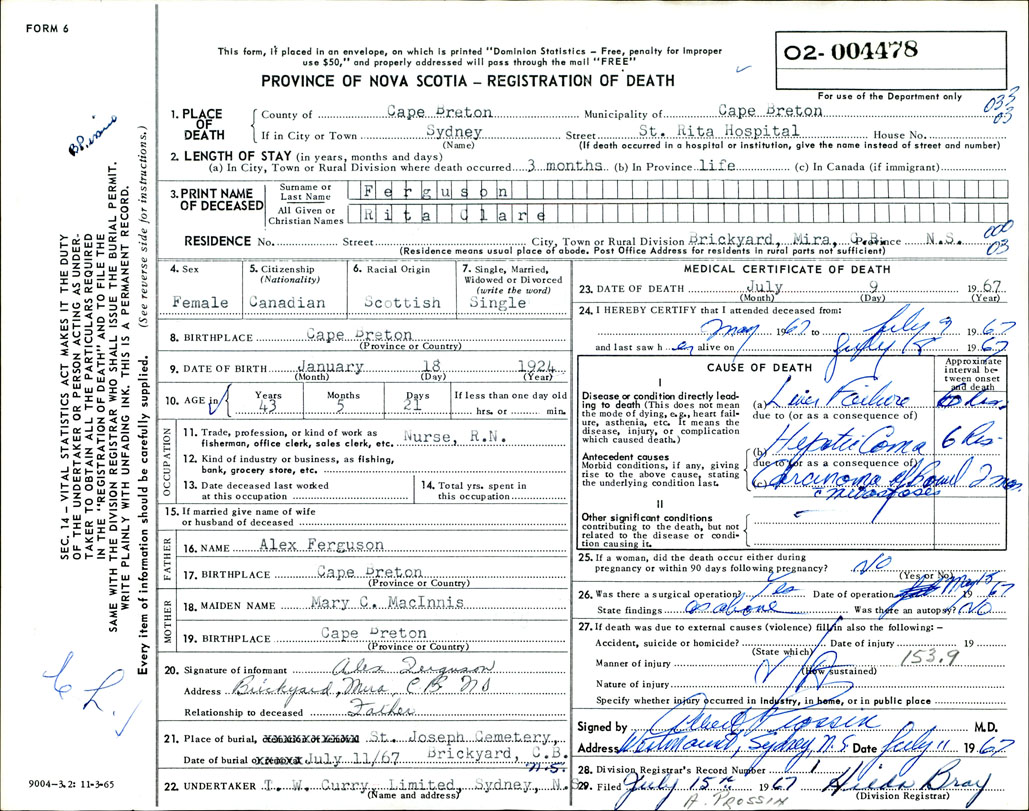 FORM 6
This form, if placed in an envelope, on which is printed "Dominion Statistics – Free, penalty for improper
use $50," and properly addressed will pass through the mail "FREE"
PROVINCE OF NOVA SCOTIA – REGISTRATION OF DEATH
02-004478
For use of the Department only
033
03
1. PLACE OF DEATH County of Cape Breton Municipality of Cape Breton
If in City or Town Sydney Street St. Rita Hospital House No.
(Name) (If death occurred in a hospital or institution, give the name instead of street and number)
2. LENGTH OF STAY (in years, months and days)
(a) In City, Town or Rural Division where death occurred 3 months (b) In Province life (c) In Canada (if immigrant)
3. PRINT NAME OF DECEASED
Surname or Last Name Ferguson
All Given or Christian Names Rita Clare
000
03
RESIDENCE No. Street City, Town or Rural Division Brickyard, Mira, C.B. Province N.S.
(Residence means usual place of abode. Post Office Address for residents in rural parts not sufficient)
4. Sex Female
5. Citizenship (Nationality) Canadian
6. Racial Origin Scottish
7. Single, Married, Widowed or Divorced (write the word) Single
8. BIRTHPLACE Cape Breton
(Province or Country)
9. DATE OF BIRTH January 18 1924
(Month) (Day) (Year)
10. AGE in Years 43 Months 5 Days 21 If less than one day old hrs. or min.
OCCUPATION
11. Trade, profession, or kind of work as fisherman, office clerk, sales clerk, etc. Nurse, R.N.
12. Kind of industry or business, as fishing, bank, grocery store, etc.
13. Date deceased last worked at this occupation
14. Total yrs. spent in this occupation
15. If married give name of wife or husband of deceased
FATHER
16. NAME Alex Ferguson
17. BIRTHPLACE Cape Breton
(Province or Country)
MOTHER
18. MAIDEN NAME Mary C. MacInnis
19. BIRTHPLACE Cape Breton
(Province or Country)
20. Signature of informant Alex Ferguson
Address Brickyard, Mira, C B NS
Relationship to deceased Father
21. Place of burial, St. Joseph Cemetery,
Brickyard, C.B.
Date of burial July 11/67
N.S.
22. UNDERTAKER T. W. Curry, Limited, Sydney, N.S
(Name and address)
MEDICAL CERTIFICATE OF DEATH
23. DATE OF DEATH July 9 1967
(Month) (Day) (Year)
24. I HEREBY CERTIFY that I attended deceased from:
May 1967 to July 9 1967
and last saw h er alive on July 1967
CAUSE OF DEATH
Approximate interval between onset and death
I
Disease or condition directly leading to death (This does not mean the mode of dying, e.g., heart failure, asthenia, etc. It means the disease, injury, or complication which caused death.)
(a) Liver Failure
due to (or as a consequence of)
(b) Hepatic Coma 6
Antecedent causes
Morbid conditions, if any, giving rise to the above cause, stating the underlying condition last.
due to (or as a consequence of)
(c) Carcinoma of Bowel 2 mos.
c metastases
II
Other significant conditions contributing to the death, but not related to the disease or condition causing it.
25. If a woman, did the death occur either during pregnancy or within 90 days following pregnancy? NO
(Yes or No)
26. Was there a surgical operation? Yes Date of operation May 15 1967
State findings as above Was there an autopsy? No
27. If death was due to external causes (violence) fill in also the following: –
Accident, suicide or homicide? Date of injury 19
(State which)
153.9
Manner of injury
(How sustained)
Nature of injury
Specify whether injury occurred in Industry, in home, or in public place
Signed by Albert Prossin M.D.
Address Westmount, Sydney, N.S. Date July 11 1967
28. Division Registrar's Record Number 1
29. Filed July 15th 1967 Hilda Bray
(Division Registrar)
A. PROSSIN
SEC. 14 – VITAL STATISTICS ACT MAKES IT THE DUTY
OF THE UNDERTAKER OR PERSON ACTING AS UNDER-
TAKER TO OBTAIN ALL THE PARTICULARS REQUIRED
IN THE "REGISTRATION OF DEATH" AND TO FILE THE
SAME WITH THE DIVISION REGISTRAR WHO SHALL ISSUE THE BURIAL PERMIT.
WRITE PLAINLY WITH UNFADING INK. THIS IS A PERMANENT RECORD.
Every item of information should be carefully supplied. (See reverse side for instructions.)
9004–3.2: 11-3-65